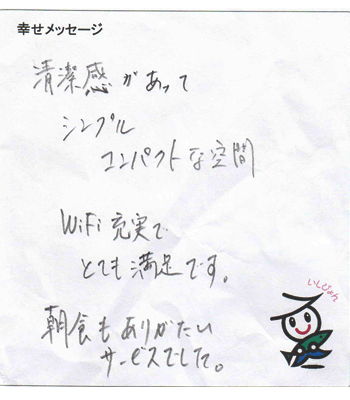 幸せメッセージ
清潔感があって
シンプル
コンパクトな空間
WiFi充実で
とても満足です。
朝食もありがたい
サービスでした。
いしぴょん